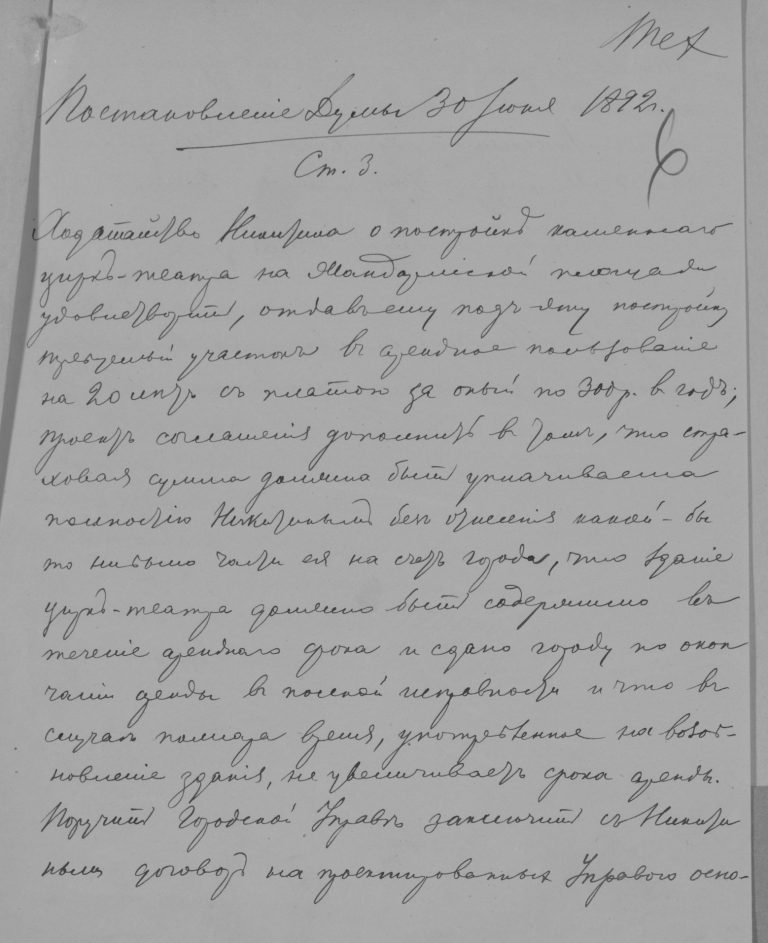 Постановленіе Думы 30 Іюня 1892 г.
6
Ст. 3.
Ходатайство Никитина о постройкѣ каменнаго
циркъ-театра на Жандармской площади
удовлетворить, отдавъ ему подъ эту постройку
требуемый участокъ въ арендное пользованіе
на 20 лѣтъ съ платою за оный по 300 р. въ годъ;
проектъ соглашенія дополнить въ томъ, что стра-
ховая сумма должна быть уплачиваема
полностію Никитинымъ безъ отнесенія какой-бы
то нибыло части ея на счетъ города, что зданіе
циркъ-театра должно быть содержимо въ
теченіе аренднаго срока и сдано городу по окон
чаніи аренды въ полной исправности и что въ
случаѣ пожара время, употребленное на возоб-
новленіе зданія, не увеличиваетъ срока аренды.
Поручить Городской Управѣ заключить съ Никити
нымъ договоръ на проектированныхъ Управою осно-